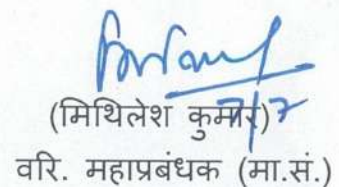 (मिथिलेश कुमार)
7/7
वरि. महाप्रबंधक (मा.सं.)